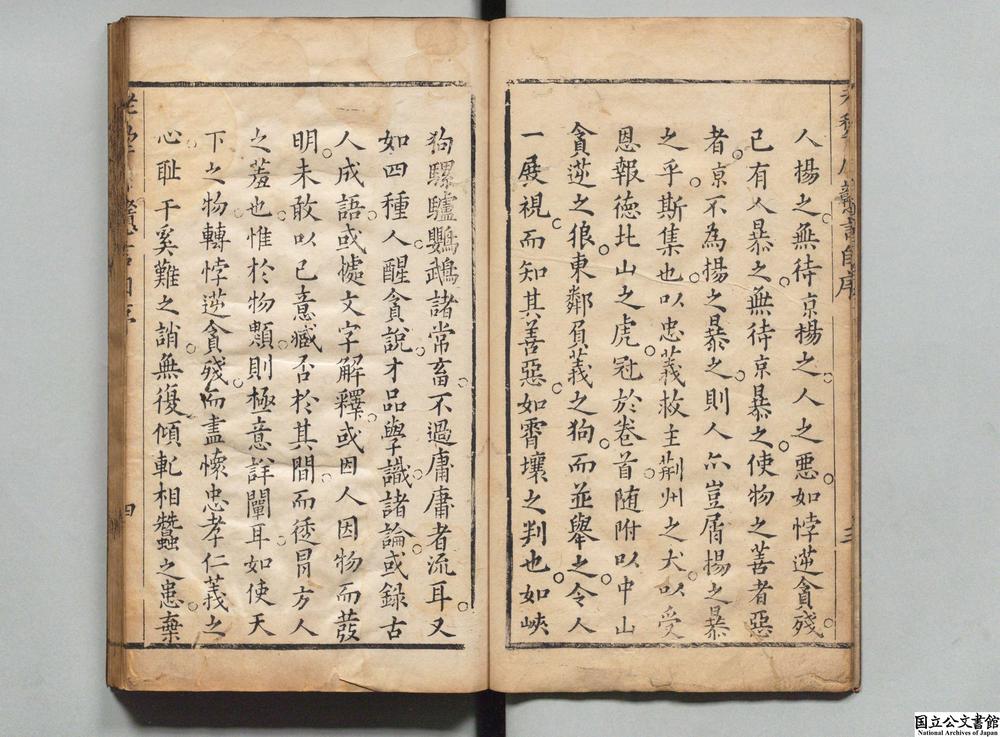 人揚之無待京揚之人之惡如悖逆貪殘
已有人暴之無待京暴之使物之善者惡
者京不為揚之暴之則人亦豈屑揚之暴
之乎斯集也以忠義救主荊州之犬以受
恩報德北山之虎冠於卷首随附以中山
貪逆之狼東鄰負義之狗而並舉之令人
一展視而知其善惡如霄壤之判也如峽
狗騾驢鸚鵡諸常畜不過庸庸者流耳又
如四種人醒貪說才品學識諸論或録古
人成語或據文字解釋或因人因物而發
明未敢以己意臧否於其間而透冐方人
之羞也惟於物類則極意詳闡耳如使天
下之物轉悖逆貪殘而盡懷忠孝仁義之
心耻干奚難之誚無復傾軋相蠶之患棄
四
国立公文書館
National Archives of Japan